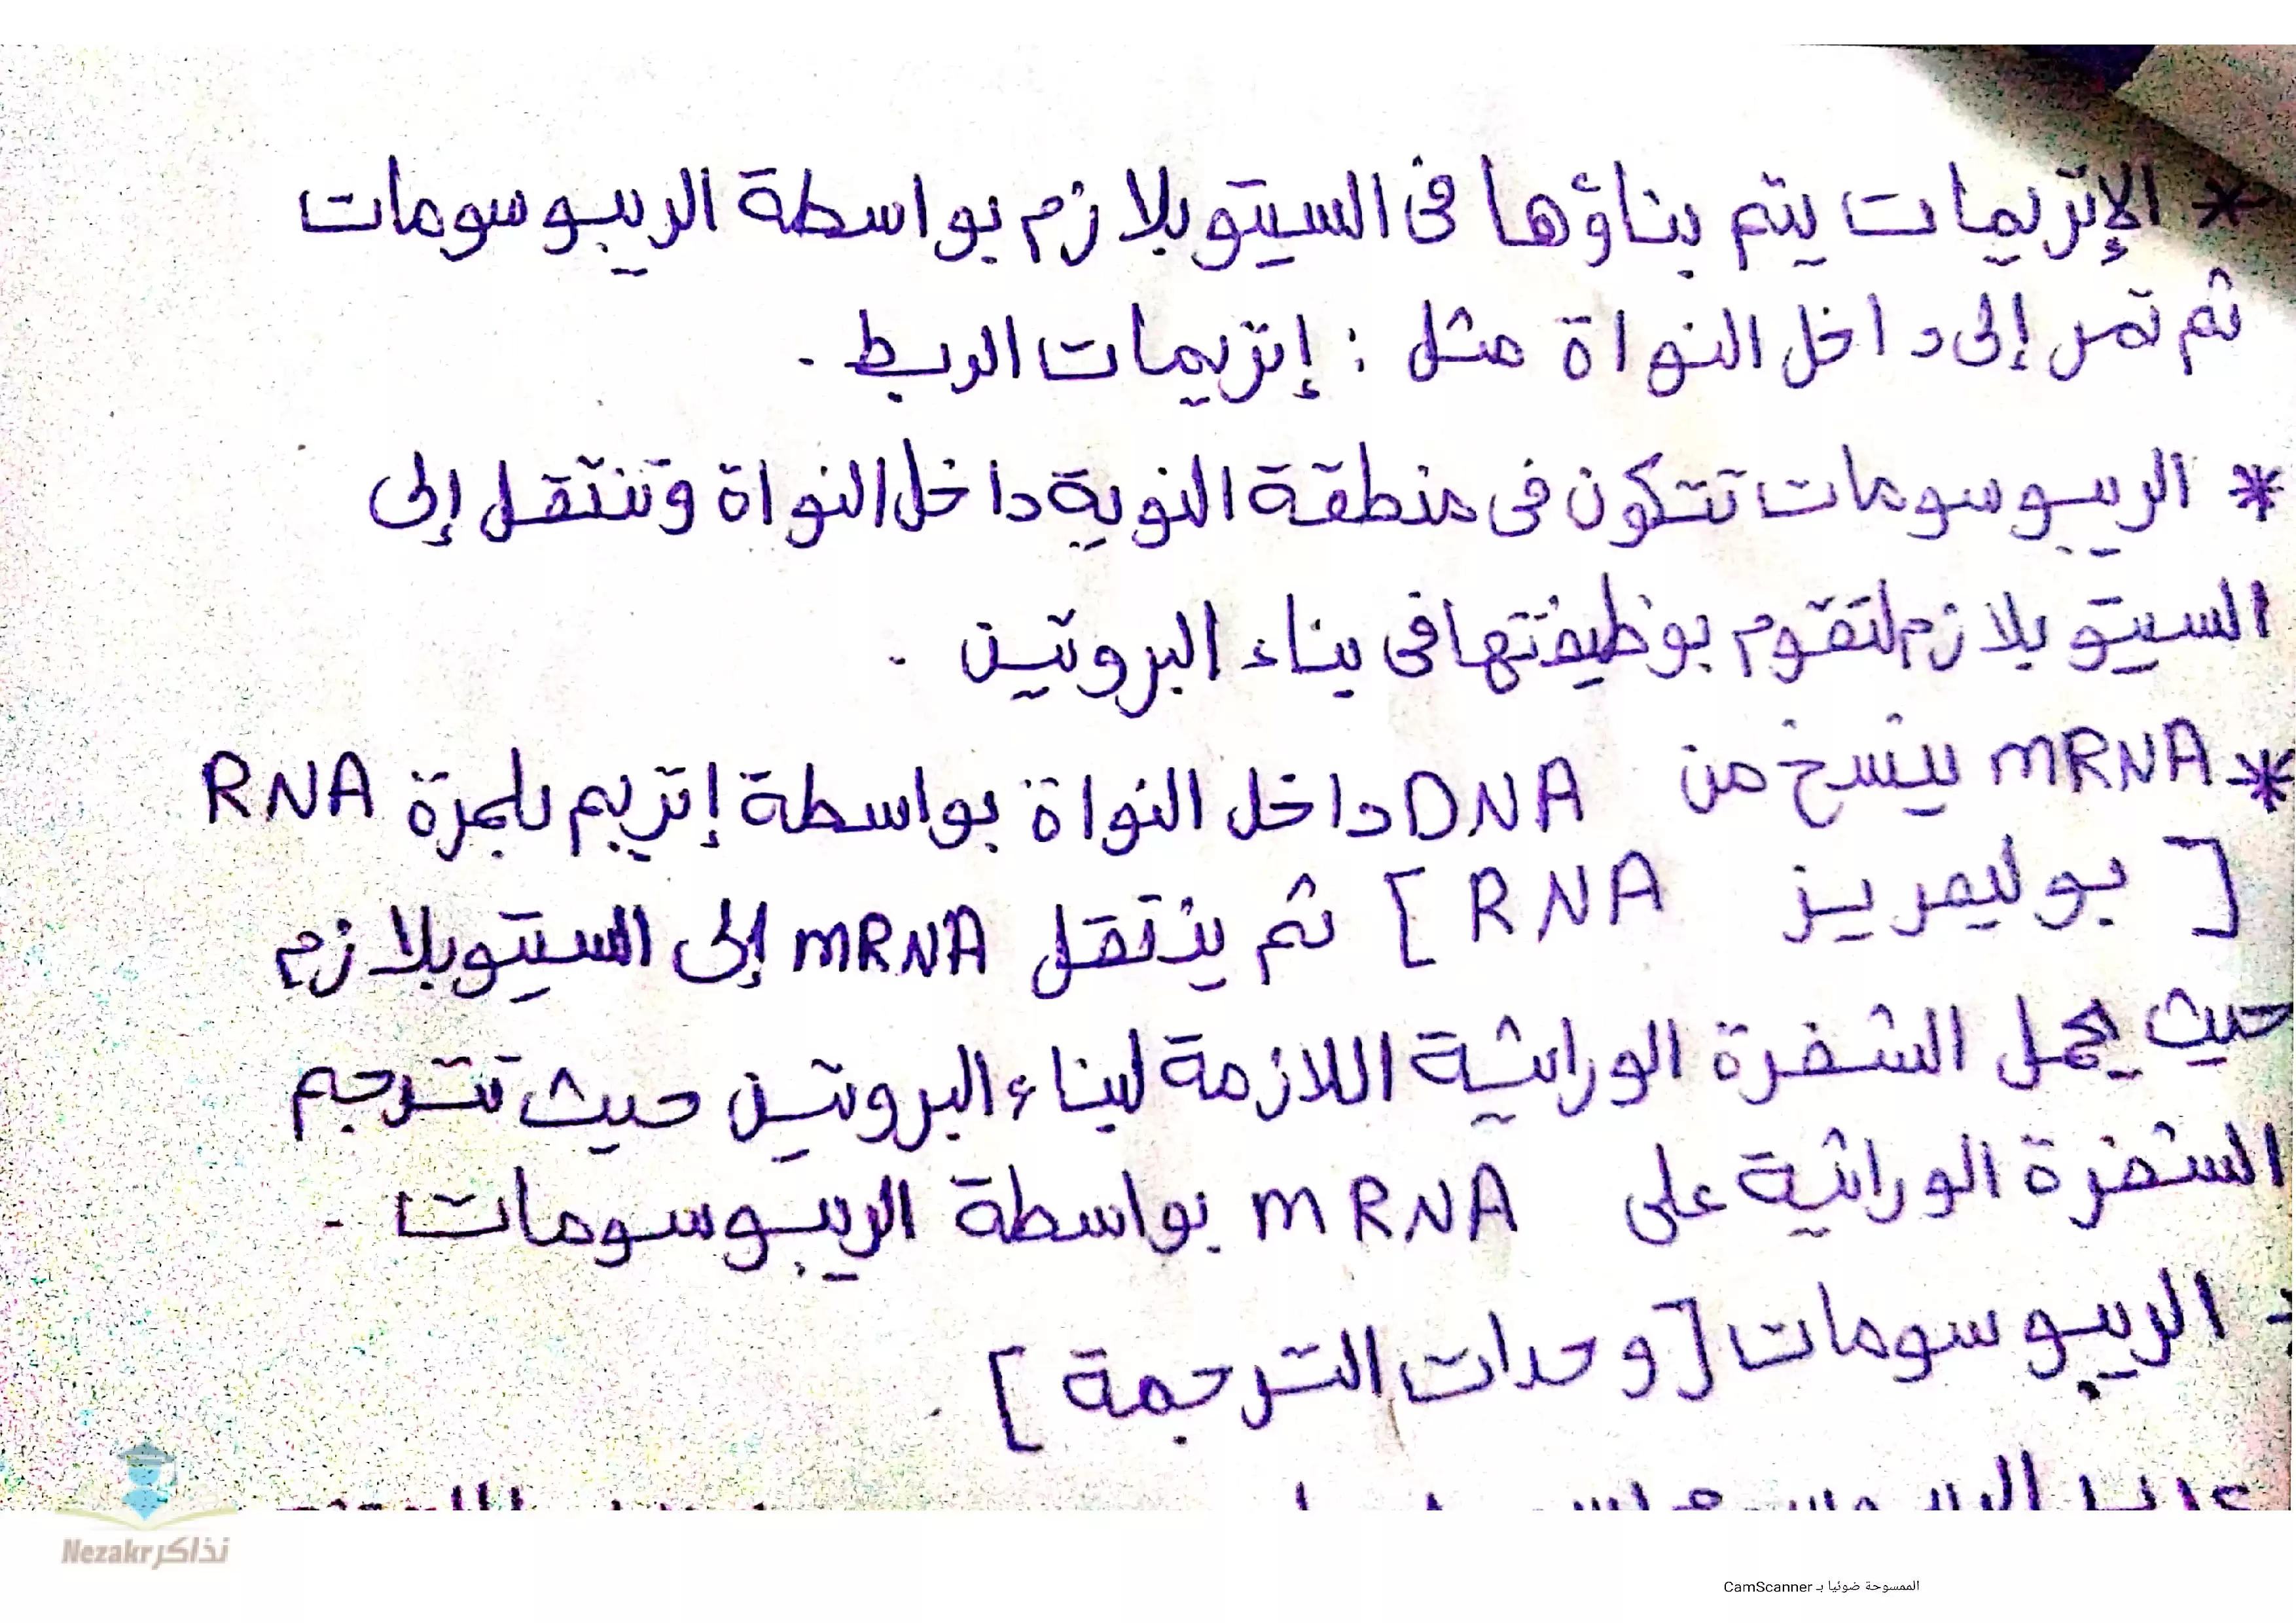 * الإنزيمات يتم بناؤها فى السيتوبلازم بواسطة الريبوسومات
ثم تمر إلى داخل النواة مثل : إنزيمات الربط .
* الريبوسومات تتكون فى منطقة النوية داخل النواة وتنتقل إلى
السيتوبلازم لتقوم بوظيفتها فى بناء البروتين .
* mRNA ينسخ من DNA داخل النواة بواسطة إنزيم بلمرة RNA
[ بوليمريز RNA ] ثم ينتقل mRNA إلى السيتوبلازم
حيث يحمل الشفرة الوراثية اللازمة لبناء البروتين حيث تترجم
الشفرة الوراثية على mRNA بواسطة الريبوسومات .
- الريبوسومات [ وحدات الترجمة ] .
نذاكر Nezakr
الممسوحة ضوئيا بـ CamScanner